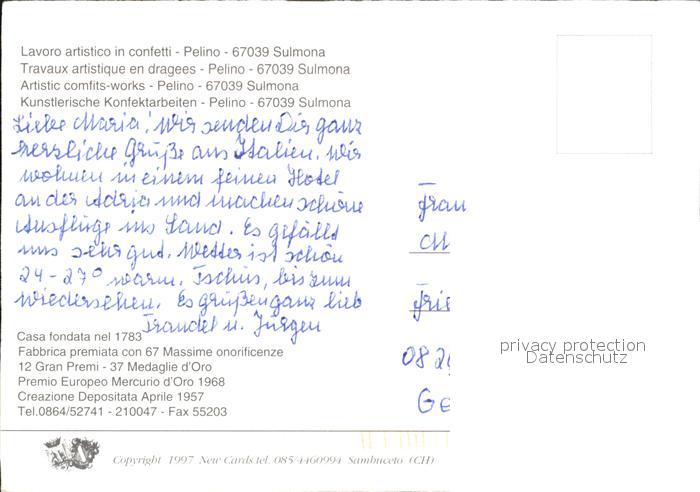 Lavoro artistico in confetti - Pelino - 67039 Sulmona
Travaux artistique en dragees - Pelino - 67039 Sulmona
Artistic comfits-works - Pelino - 67039 Sulmona
Kunstlerische Konfektarbeiten - Pelino - 67039 Sulmona
Liebe Maria! Wir senden Dir ganz
herzliche Grüße aus Italien. Wir
wohnen in einem feinen Hotel
an der Adria und machen schöne
Ausflüge ins Land. Es gefällt
uns sehr gut. Wetter ist schön
24-27° warm. Tschüs, bis zum
Wiedersehen. Es grüßen ganz lieb
Traudel u. Jürgen
Frau
M
Frie
082
Ge
Casa fondata nel 1783
Fabbrica premiata con 67 Massime onorificenze
12 Gran Premi - 37 Medaglie d'Oro
Premio Europeo Mercurio d'Oro 1968
Creazione Depositata Aprile 1957
Tel.0864/52741 - 210047 - Fax 55203
privacy protection
Datenschutz
Copyright 1997 New Cards tel. 085/4460994 Sambuceto (CH)